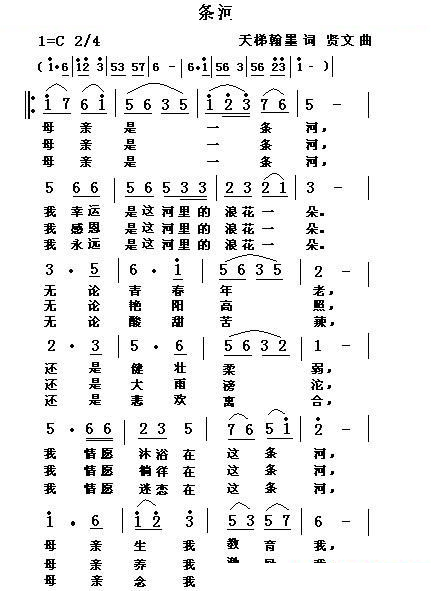 条河
1=C 2/4 天梯翰墨 词 贤文 曲
( i·6 | i2 3 | 53 57 | 6 - | 6·i | 56 3 | 56 23 | i - )
i 7 6 i | 5 6 3 5 | i 2 3 7 6 | 5 - |
母 亲 是 一 条 河，
母 亲 是 一 条 河，
母 亲 是 一 条 河，
5 6 6 | 5 6 5 3 3 | 2 3 2 1 | 3 - |
我 幸运 是这河里的 浪花一 朵。
我 感恩 是这河里的 浪花一 朵。
我 永远 是这河里的 浪花一 朵。
3 · 5 | 6 · i | 5 6 3 5 | 2 - |
无 论 青 春 年 老，
无 论 艳 阳 高 照，
无 论 酸 甜 苦 辣，
2 · 3 | 5 · 6 | 5 6 3 2 | 1 - |
还 是 健 壮 柔 弱，
还 是 大 雨 滂 沱，
还 是 悲 欢 离 合，
5 · 6 6 | 2 3 5 | 7 6 5 i | 2 - |
我 情愿 沐浴在 这 条 河，
我 情愿 徜徉在 这 条 河，
我 情愿 迷恋在 这 条 河，
i · 6 | i 2 3 | 5 3 5 7 | 6 - |
母 亲 生 我 教 育 我，
母 亲 养 我
母 亲 念 我